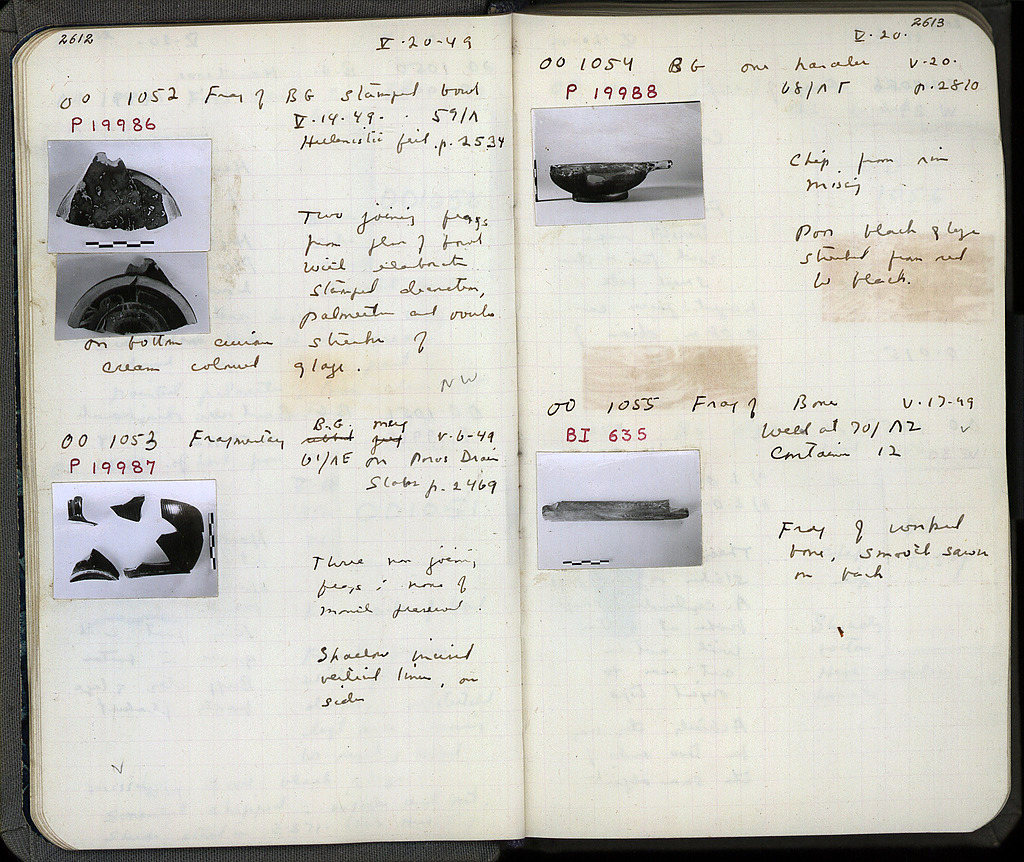 2612
V·20·49
OO 1052 Frag of BG stamped bowl
P 19986
V·14·49· 59/Λ
Hellenistic fill p. 2534
Two joining frags
from floor of bowl
with elaborate
stamped decoration,
palmettes and ovules
on bottom
streaks of
cream colored glaze.
NW
OO 1053 Fragmentary B.G. mug V·6·49
P 19987
on Poros Drain
Slabs p. 2469
Three non joining
frags; none of
mouth preserved.
Shallow incised
vertical lines, on
sides
2613
V·20·
OO 1054 BG one handler V·20·
P 19988
p. 2810
Chip from rim
missing
Poor black glaze
streaked from red
to black.
OO 1055 Frag of Bone V·17·49
BI 635
Well at 70/ΛΖ
Container 12
Frag of worked
bone, smooth sawn
on back